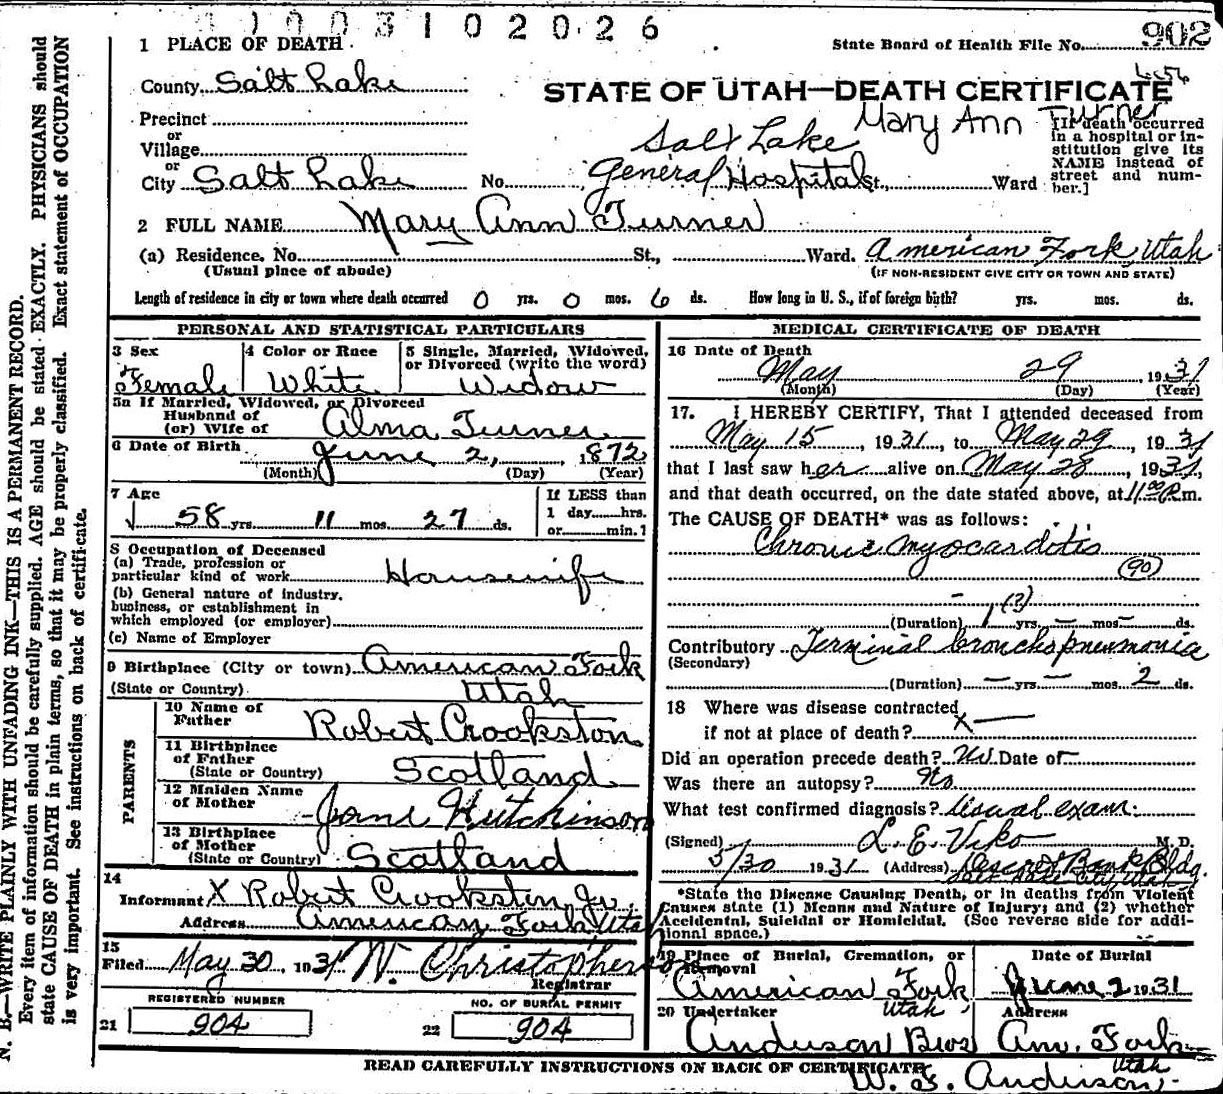 1003102026
902
1 PLACE OF DEATH
State Board of Health File No.
County Salt Lake
STATE OF UTAH—DEATH CERTIFICATE
Mary Ann Turner
Precinct
or
Village
or
City Salt Lake No. Salt Lake General Hospital St., Ward
[If death occurred in a hospital or institution give its NAME instead of street and number.]
2 FULL NAME Mary Ann Turner
(a) Residence. No. St., Ward. American Fork, Utah
(Usual place of abode)
(IF NON-RESIDENT GIVE CITY OR TOWN AND STATE)
Length of residence in city or town where death occurred 0 yrs. 0 mos. 6 ds. How long in U. S., if of foreign birth? yrs. mos. ds.
PERSONAL AND STATISTICAL PARTICULARS
3 Sex
Female
4 Color or Race
White
5 Single, Married, Widowed,
or Divorced (write the word)
Widow
5a If Married, Widowed, or Divorced
Husband of
(or) Wife of Alma Turner
6 Date of Birth
June 2, 1872
(Month) (Day) (Year)
7 Age
58 yrs. 11 mos. 27 ds.
If LESS than
1 day......hrs.
or......min.?
8 Occupation of Deceased
(a) Trade, profession or
particular kind of work Housewife
(b) General nature of industry,
business, or establishment in
which employed (or employer)
(c) Name of Employer
9 Birthplace (City or town) American Fork
(State or Country) Utah
PARENTS
10 Name of
Father Robert Crookston
11 Birthplace
of Father
(State or Country) Scotland
12 Maiden Name
of Mother Jane Hutchinson
13 Birthplace
of Mother
(State or Country) Scotland
14
Informant X Robert Crookston Jr.
Address American Fork, Utah
15
Filed May 30, 1931 W. Christopherson
Registrar
REGISTERED NUMBER
21 904
NO. OF BURIAL PERMIT
22 904
MEDICAL CERTIFICATE OF DEATH
16 Date of Death
May 29, 1931
(Month) (Day) (Year)
17. I HEREBY CERTIFY, That I attended deceased from
May 15, 1931, to May 29, 1931
that I last saw her alive on May 28, 1931,
and that death occurred, on the date stated above, at 11:00 P.m.
The CAUSE OF DEATH* was as follows:
Chronic myocarditis
(90)
(Duration) 1 (?) yrs. — mos. — ds.
Contributory Terminal bronchopneumonia
(Secondary)
(Duration) — yrs. — mos. 2 ds.
18 Where was disease contracted
if not at place of death? X —
Did an operation precede death? No Date of —
Was there an autopsy? No
What test confirmed diagnosis? Usual exam.
(Signed) L. E. Viko M. D.
5/30 1931 (Address) Deseret Bank Bldg.
*State the Disease Causing Death, or in deaths from Violent
Causes state (1) Means and Nature of Injury; and (2) whether
Accidental, Suicidal or Homicidal. (See reverse side for additional space.)
19 Place of Burial, Cremation, or
Removal
American Fork
Utah
Date of Burial
June 2 1931
20 Undertaker
Anderson Bros
Address
Am. Fork
Utah
W. F. Anderson
READ CAREFULLY INSTRUCTIONS ON BACK OF CERTIFICATE
N. B.—WRITE PLAINLY WITH UNFADING INK—THIS IS A PERMANENT RECORD.
Every item of information should be carefully supplied. AGE should be stated EXACTLY. PHYSICIANS should
state CAUSE OF DEATH in plain terms, so that it may be properly classified. Exact statement of OCCUPATION
is very important. See instructions on back of certificate.